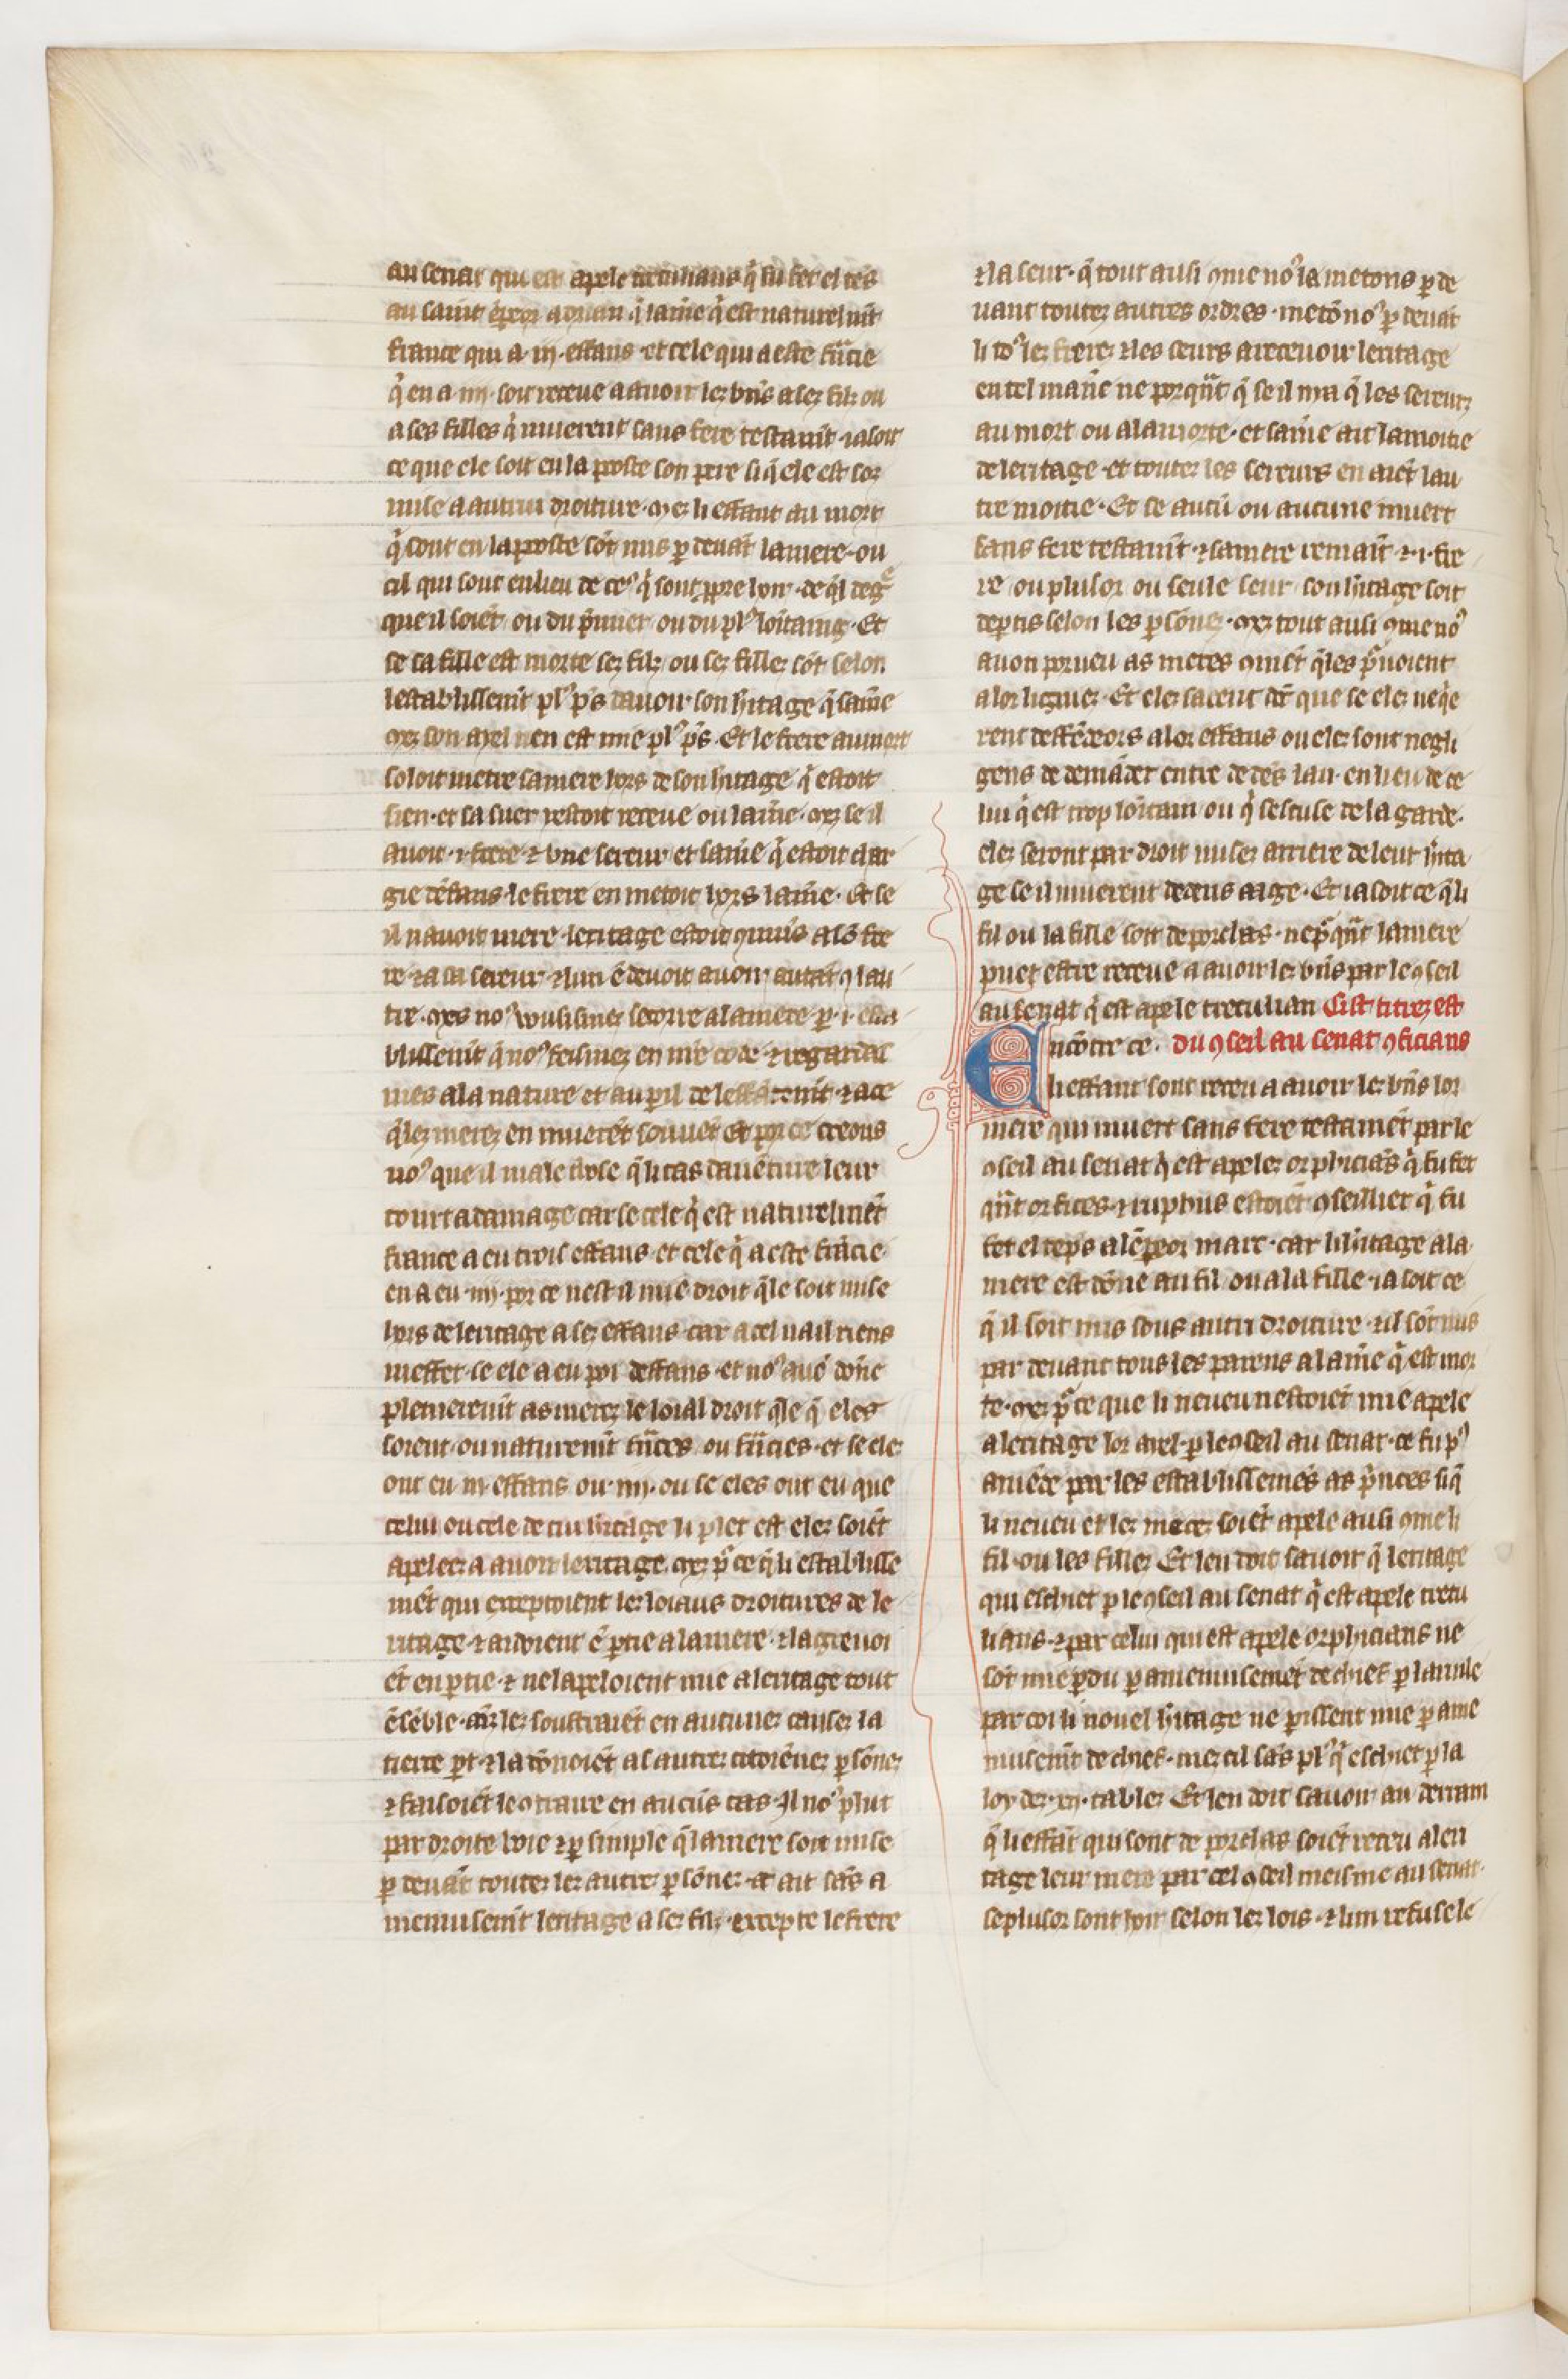 au senat qui est apele tertulians q̄ fu fet el tēs
au saint ēpeor adrian q̄ la me q̄ est naturelm̄t
franche qui a .iij. effans et cele qui a este frācie
q̄ en a .iiij. soit receue a auoir lez bn̄s a sez filz ou
a ses filles q̄ muerent sans fere testam̄t ia soit
ce que ele soit en la poste son pere si q̄ ele est soz
mise a autrui droiture. mez li effant au mort
q̄ sont en la poste sōt mis p deuāt la mere. ou
cil qui sont en lieu de ceꝰ q̄ sont ppre hoir. de q̄l degre
que il soiēt ou du p̄mier ou du plꝰ loītaing. Et
se sa fille est morte sez filz ou sez fillez sōt selon
lestablissem̄t plꝰ p̄s dauoir son h̄itage q̄ sa me
mez son ayel nen est mie plꝰ p̄s. Et le frere au mort
soloit metre sa mere hors de son h̄itage q̄ estoit
sien. et sa suer restoit receue ou la me. mez se il
auoit .i. frere ⁊ vne sereur et sa me q̄ estoit char
gie dēfans. le frere en metoit hors la me. Et se
il nauoit mere. leritage estoit q̄muns a son fre
re ⁊ a sa sereur. ⁊ lun ē deuoit auoir autāt ꝯ lau
tre. mes noꝰ vousismez secorre a la mere p .i. esta
blissem̄t q̄ noꝰ feismez en nr̄e code ⁊ regarda
mes a la nature et au pil de leffātem̄t ⁊ a ce
q̄ lez merez en muerēt souuēt Et por ce creons
noꝰ que il male chose q̄ li cas dauēture leur
tourt a damage car se cele q̄ est naturelmēt
france a eu trois effans et cele q̄ a este frācie
en a eu .iiij. por ce nest il mie droit q̄le soit mise
hors de leritage a sez effans car a cel na il riens
meffet se ele a eu poi deffans et noꝰ auō dōne
plenierem̄t as merez le loial droit q̄le q̄ eles
soient ou naturem̄t frāces ou frācies. et se elez
ont eu .iij. effans ou .iiij. ou se eles ont eu que
celui ou cele de cui h̄itage li plet est elez soiēt
apeleez a auoir leritage. mez p ce q̄ li establisse
mēt qui exceptoient lez loiaus droitures de le
ritage ⁊ aidoient ē ptie a la mere ⁊ la greuoi
ēt en ptie ⁊ ne lapeloient mie a leritage tout
ēsēble. ainz lez soustraiēt en aucunez causez la
tierce pt ⁊ la dōnoiēt as autrez citoiēnez psōnez
⁊ faisoiēt le ꝯtraire en aucūs cas. Il noꝰ plut
par droite voie ⁊ p simple q̄ la mere soit mise
p deuāt toutez lez autrez psōnez ⁊ ait sās a
menuisem̄t leritage a sez filz. excepte le frere
⁊ la seur. q̄ tout ausi ꝯme noꝰ la metons p de
uant toutez autres ordres. metō noꝰ p deuāt
li toꝰ lez frerez ⁊ les seurs a receuoir leritage
en tel manē ne porqn̄t q̄ se il ni a q̄ les sereurz
au mort ou a la morte. et sa me ait la moitie
de leritage et toutez les sereurs en aiēt lau
tre moitie. Et se aucū ou aucune muert
sans fere testam̄t ⁊ sa mere remaīt ⁊ .i. fre
re ou plusor ou seule seur son h̄itage soit
deptis selon les psōnez. mez tout ausi ꝯme noꝰ
auon porueu as meres ꝯuiēt q̄les p̄uoient
a lor ligniez. Et elez sachent dōt que se elez ne q̄e
rent deffēdeors a lor effans ou elez sont negli
gens de demāder entre dedēs lan. en lieu de ce
lui q̄ est trop loītain ou q̄ sescuse de la garde.
elez seront par droit misez arriere de leur h̄ita
ge se il muerent dedens aage. Et ia soit ce q̄ li
fil ou la fille soit de porchas. nep̄qn̄t la mere
puet estre receue a auoir lez bn̄s par le ꝯseil
au senat q̄ est apele tretulian Cist titrez est
Encōtre ce. du ꝯseil au senat ꝯficians
li effant sont receu a auoir lez bn̄s lor
mere qui muert sans fere testamēt par le
ꝯseil au senat q̄ est apelez orphicians q̄ fu fet
qn̄t orfices ⁊ ruphus estoiēt ꝯseillier q̄ fu
fet el teps a lēpeor marc. car li h̄itage a la
mere est dōne au fil ou a la fille. ia soit ce
q̄ il soit mis sous autri droiture. ⁊ il sōt mis
par deuant tous les parens a la me q̄ est mor
te. mez p ce que li neueu nestoiēt mie apele
a leritage lor ayel. p le ꝯseil au senat. ce fu pꝰ
amēde par les establissemēs as p̄nces si q̄
li neueu et lez niecez soiēt apele ausi ꝯme li
fil ou les fillez Et len doit sauoir q̄ leritage
qui eschiet p le ꝯseil au senat q̄ est apele tretu
lians. ⁊ par celui qui est apele orphicians ne
sōt mie pdu p amenuisemēt de chief. p la rule
par coi li nouel h̄itage ne pissent mie p ame
nuisem̄t de chief. mez cil sās plꝰ q̄ eschiet p la
loy dez .xij. tablez Et len doit sauoir au derrain
q̄ li effāt qui sont de porchas soiēt receu a leri
tage leur mere par cel ꝯseil meisme au senat.
se plusor sont hoir selon lez lois. ⁊ lun refuse le